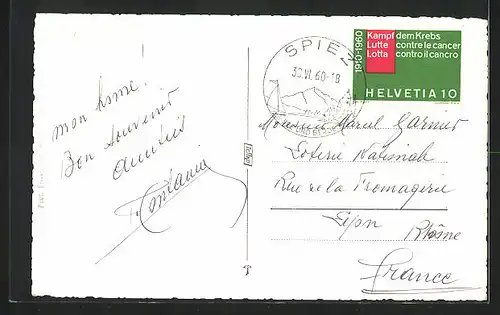 mon home.
Bon Souvenir
amitiés
SPIEZ
30.VI.60-18
1910-1960
Kampf dem Krebs
Lutte contre le cancer
Lotta contro il cancro
HELVETIA 10
Monsieur Marcel Garnier
Loterie Nationale
Rue de la Fromagerie
Lyon Rhône
France